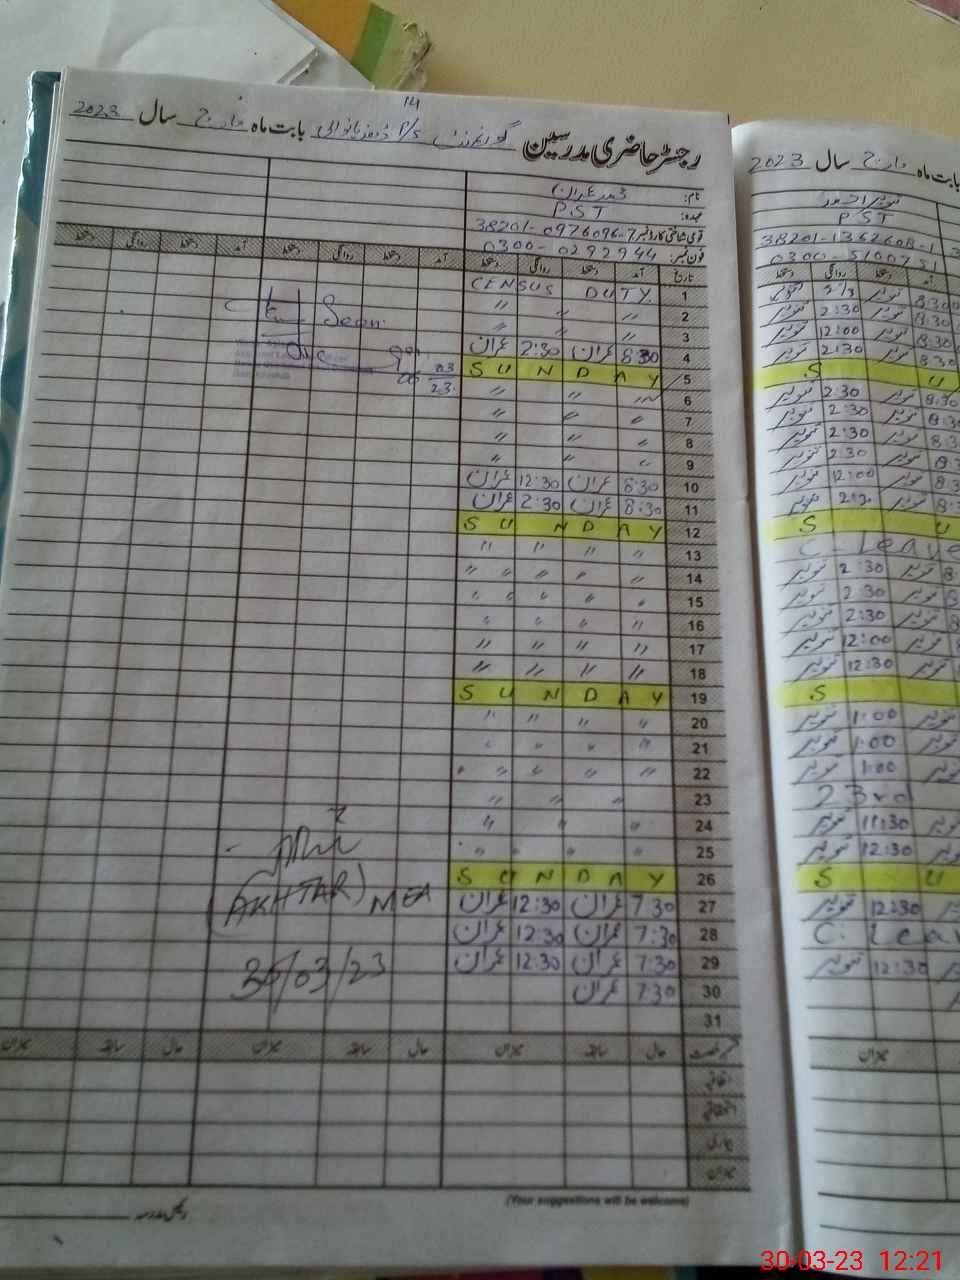 14
رجسٹر حاضری مدرسین گورنمنٹ P/S بابت ماہ مارچ سال 2023
نام: محمد عمران
عہدہ: PST
قومی شناختی کارڈ نمبر 38201-0976096-7
فون نمبر: 0300-0292944
تاریخ آمد دستخط روانگی دستخط آمد دستخط روانگی دستخط آمد دستخط روانگی دستخط
1 CENSUS DUTY
2 " " "
3 " " "
4 8:30 عمران 2:30 عمران
5 SUNDAY
6 " " "
7 " " "
8 " " "
9 " " "
10 8:30 عمران 12:30 عمران
11 8:30 عمران 2:30 عمران
12 SUNDAY
13 " " " "
14 " " " "
15 " " " "
16 " " " "
17 " " " "
18 " " " "
19 SUNDAY
20 " " " "
21 " " " "
22 " " " "
23 " " "
24 " " "
25 " " "
26 SUNDAY
27 7:30 عمران 12:30 عمران
28 7:30 عمران 12:30 عمران
29 7:30 عمران 12:30 عمران
30 7:30 عمران
31
Seen
03
23
(AKHTAR) MEA
30/03/23
حال سابقہ میزان حال سابقہ میزان حال سابقہ میزان
اتفاقیہ
استحقاقیہ
بیماری
میزان
(Your suggestions will be welcome)
رئیس مدرسہ
بابت ماہ مارچ سال 2023
PST
38201-1362608-1
0300-5100751
آمد دستخط روانگی دستخط
8:30 تنویر
8:30 تنویر 2:30 تنویر
8:30 تنویر 12:00 تنویر
8:30 تنویر 2:30 تنویر
S U
8:30 تنویر 2:30 تنویر
8:30 تنویر 2:30 تنویر
8:3 تنویر 2:30 تنویر
8:3 تنویر 2:30 تنویر
8:3 تنویر 12:00 تنویر
8: تنویر 2:30 تنویر
S U
C - Leave
8: تنویر 2:30 تنویر
8: تنویر 2:30 تنویر
تنویر 2:30 تنویر
تنویر 12:00 تنویر
تنویر 12:30 تنویر
S
تنویر 1:00 تنویر
تنویر 1:00 تنویر
تنویر 1:00 تنویر
23rd
تنویر 11:30 تنویر
تنویر 12:30 تنویر
S U
12:30 تنویر
C. Leav
12:30 تنویر
میزان
30-03-23 12:21